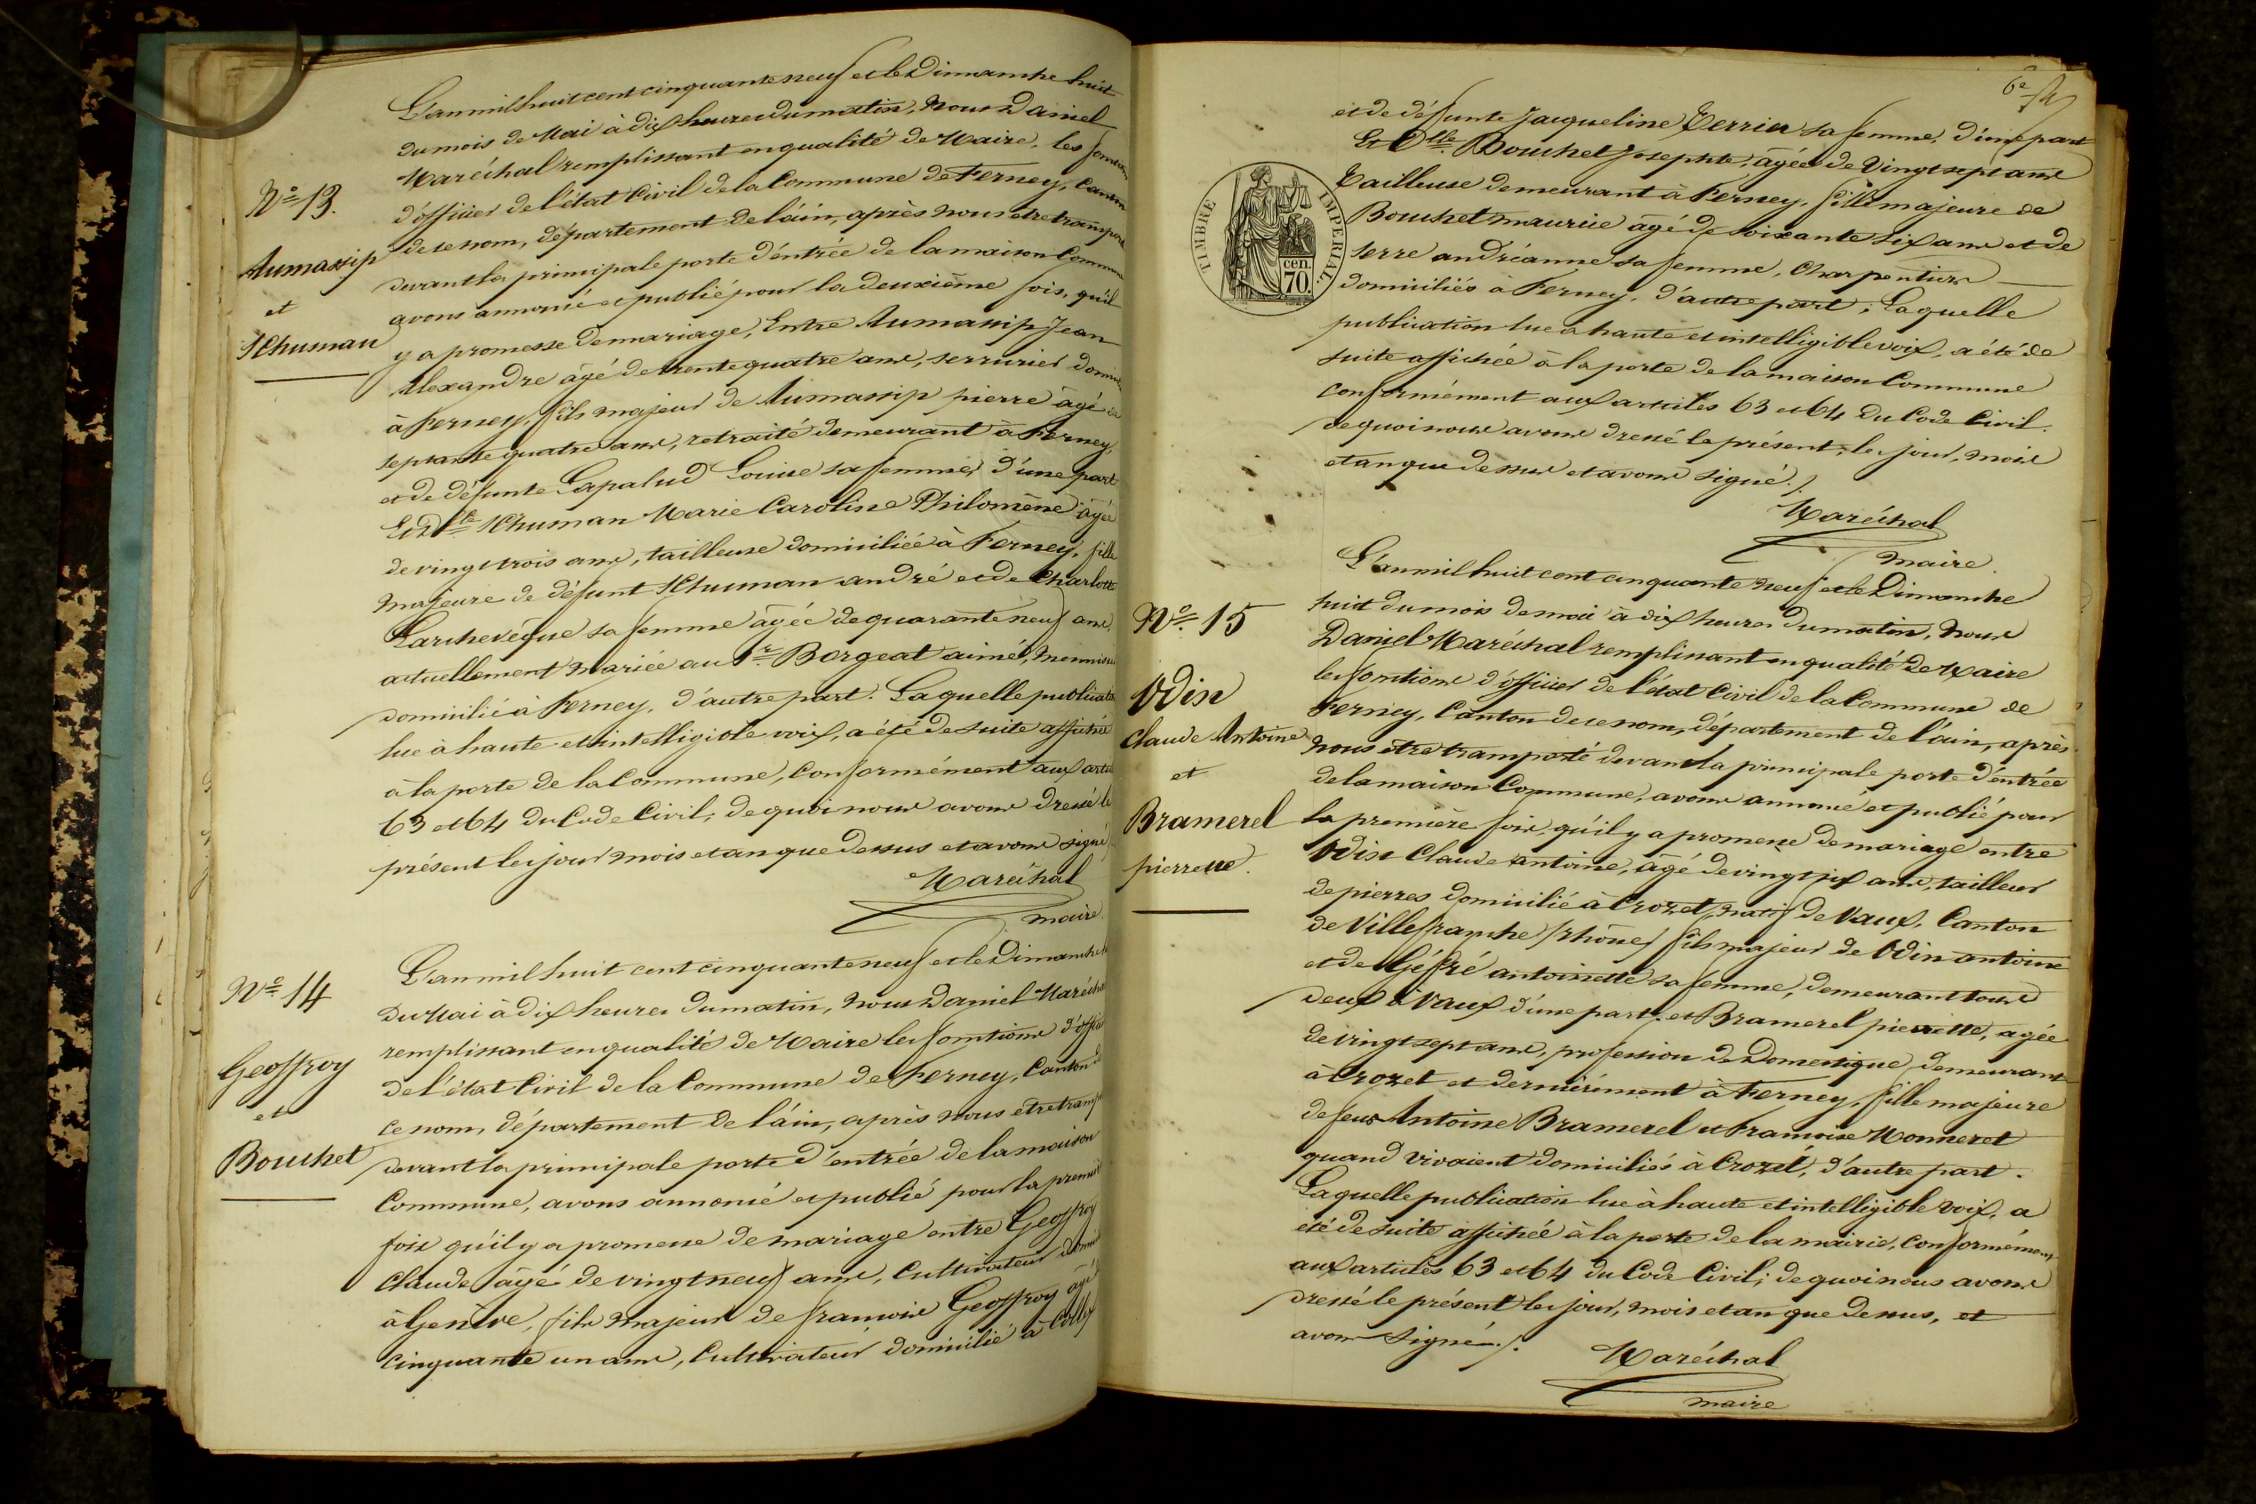 L'an mil huit cent cinquante neuf et le Dimanche huit
du mois de Mai à dix heures du matin, Nous Daniel
Maréchal remplissant en qualité de Maire, les fonctions
d'officier de l'état Civil de la Commune de Ferney, Canton
de ce nom, département de l'ain, après nous etre transporté
devant la principale porte d'éntrée de la maison Commune
avons annoncé et publié pour la deuxième fois, qu'il
y a promesse de mariage, Entre Aumassip Jean
Alexandre âgé de trente quatre ans, serrurier domicilié
à Ferney, fils majeur de Aumassip pierre âgé de
septante quatre ans, retraité demeurant à Ferney,
et de défunte Lapalud Louise sa femme, d'une part
Et Dlle Schuman Marie Caroline Philomène âgée
de vingt trois ans, tailleuse domiciliée à Ferney, fille
majeure de défunt Schuman andré et de Charlotte
Larchevêque sa femme âgée de quarante neuf ans,
actuellement Mariée au Sr Borgeat aimé, Menuisier
domicilié à Ferney, d'autre part. Laquelle publication
lue à haute et intelligible voix, a été de suite affichée
à la porte de la Commune, Conformément aux articles
63 et 64 du Code Civil, de quoi nous avons dressé le
présent les jour mois et an que dessus et avons signé
Maréchal
maire
No 13.
Aumassip
et
Schuman
L'an mil huit cent cinquante neuf et le Dimanche
du Mai à dix heures du matin, Nous Daniel Maréchal
remplissant en qualité de Maire les fonctions d'officier
de l'état Civil de la Commune de Ferney, Canton de
ce nom, département de l'ain, après nous etre transporté
devant la principale porte d'entrée de la maison
Commune, avons annoncé et publié pour la première
fois qu'il y a promesse de mariage entre Geoffroy
Claude âgé de vingt neuf ans, Cultivateur domicilié
à Genève, fils majeur de francois Geoffroy âgé
cinquante un ans, Cultivateur domicilié à Colly
No 14
Geoffroy
et
Bouchet
et de défunte Jacqueline Perrier sa femme, d'une part
Et Dlle Bouchet Josephte, âgée de Vingt sept ans
Tailleuse demeurant à Ferney, fille majeure de
Bouchet maurice âgé de soixante six ans et de
Serre andréanne sa femme, Charpentier
domiciliés à Ferney, d'autre part; Laquelle
publication lue à haute et intelligible voix, a été de
suite affichée à la porte de la maison Commune
conformément aux articles 63 et 64 du Code Civil.
de quoi nous avons dressé le présent, les jour, mois
et an que dessus et avons signé./.
Maréchal
maire.
TIMBRE IMPERIAL.
70 cen.
L'an mil huit cent cinquante Neuf et le Dimanche
huit du mois de mai à dix heures du matin, Nous
Daniel Maréchal remplissant en qualité de Maire
les fonctions d'officier de l'état Civil de la Commune de
Ferney, Canton de ce nom, département de l'ain, après
nous etre transporté devant la principale porte d'éntrée
de la maison Commune, avons annoncé et publié pour
la première fois, qu'il y a promesse de mariage entre
Odin Claude antoine, âgé de vingt six ans, tailleur
de pierres domicilié à Crozet, natif de Vaux, Canton
de Villefranche (rhône) fils majeur de Odin antoine
et de Géfiré antoinette sa femme, demeurant tous
deux à Vaux d'une part, et Bramerel pierrette, agée
de vingt sept ans, profession de Domestique, demeurant
à Crozet et dernièrement à Ferney, fille majeure
de feus Antoine Bramerel et Francoise Monneret
quand vivaient domiciliés à Crozet, d'autre part.
Laquelle publication lue à haute et intelligible voix, a
été de suite affichée à la porte de la mairie, Conformément
aux articles 63 et 64 du Code Civil; de quoi nous avons
dressé le présent les jour, mois et an que dessus, et
avons signé./.
Maréchal
maire
No 15
Odin
Claude Antoine
et
Bramerel
pierrette.